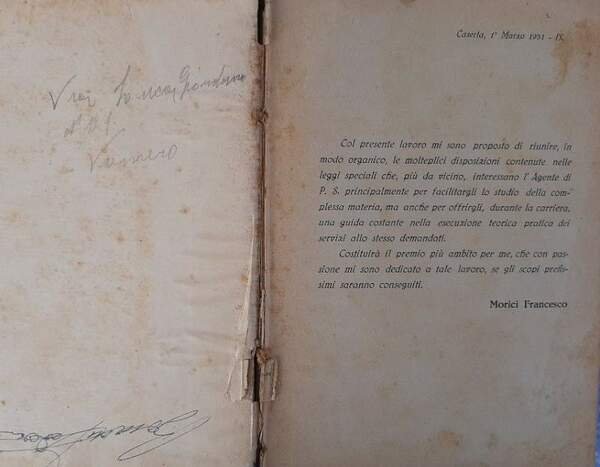 Luca Giordano
Vomero
Caserta, 1° Marzo 1931 - IX.
Col presente lavoro mi sono proposto di riunire, in
modo organico, le molteplici disposizioni contenute nelle
leggi speciali che, più da vicino, interessano l'Agente di
P. S. principalmente per facilitargli lo studio della com-
plessa materia, ma anche per offrirgli, durante la carriera,
una guida costante nella esecuzione teorica pratica dei
servizi allo stesso demandati.
Costituirà il premio più ambito per me, che con pas-
sione mi sono dedicato a tale lavoro, se gli scopi prefis-
simi saranno conseguiti.
Morici Francesco